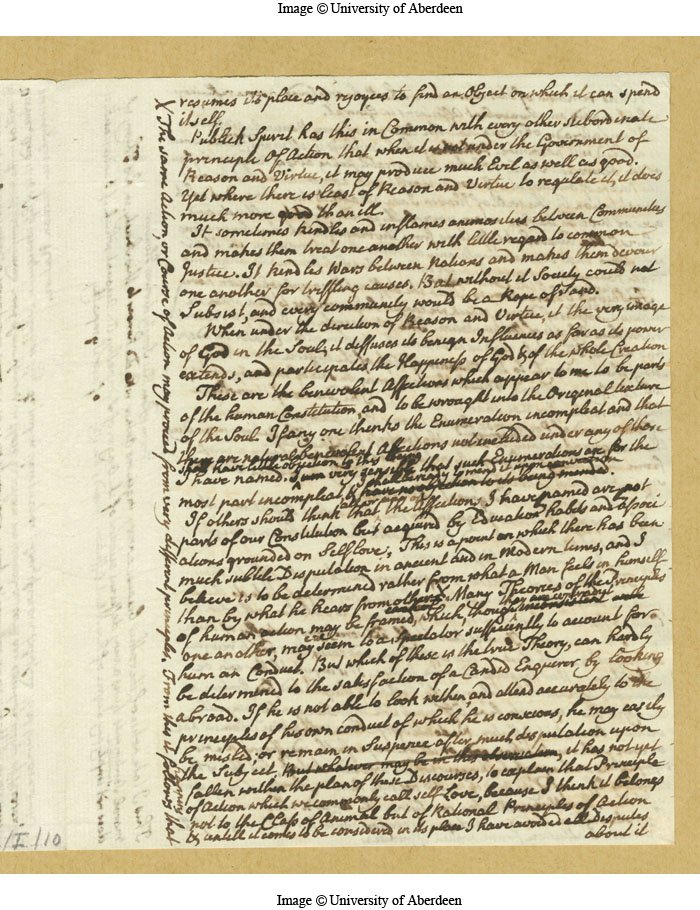 Image © University of Aberdeen
resumes its place and rejoyces to find an Object on which it can spend
itself
Publick Spirit has this in Common with every other subordinate
principle Of Action that when it is not under the Government of
Reason and Virtue, it may produce much Evil as well as good.
Yet where there is least of Reason and Virtue to regulate it, it does
much more good than ill.
It sometimes kindles and inflames animosities between Communities
and makes them treat one another with little regard to common
Justice. It kindles Wars between Nations and makes them devour
one another for triffling causes. But without it Society could not
Subsist, and every community would be a Rope of Sand.
When under the direction of Reason and Virtue, it the very image
of God in the Soul; it diffuses its benign Influences as far as its power
extends, and participates the Happiness of God & of the whole Creation
These are the benevolent Affections which appear to me to be parts
of the human Constitution, and to be wrought into the Original texture
of the Soul. If any one thinks the Enumeration incompleat and that
there are natural benevolent Affections not included under any of those
I have named. I am very sensible that such Enumerations are for the
most part incompleat &
If others should think that the affections I have named are not
parts of our Constitution but acquired by Education Habits and Associ
ations grounded on Selflove; This is a point on which there has been
much subtile Disputation in ancient and in Modern times, and I
believe is to be determined rather from what a Man feels in himself
than by what he hears from others. Many Theories of the Principles
of human action may be framed, which, though they are contrary
one another, may seem to a Spectator sufficiently to account for
human Conduct. But which of these is the true Theory, can hardly
be determined to the satisfaction of a Candid Enquerer, by looking
abroad. If he is not able to look within, and attend accurately to the
principles of his own conduct of which he is conscious, he may easily
be misled, or remain in Suspence after much disputation upon
the Subject. But whatever may be in this observation, it has not yet
fallen within the plan of these Discourses, to explain that Principle
of Action which we commonly call self love, because I think it belongs
not to the Class of Animal but of Rational Principles of Action
& untill it comes to be considered in its place I have avoided all disputes
about it
X The same Action, or Course of action may proceed from very different principles. From this it follows that
/I/10
Image © University of Aberdeen